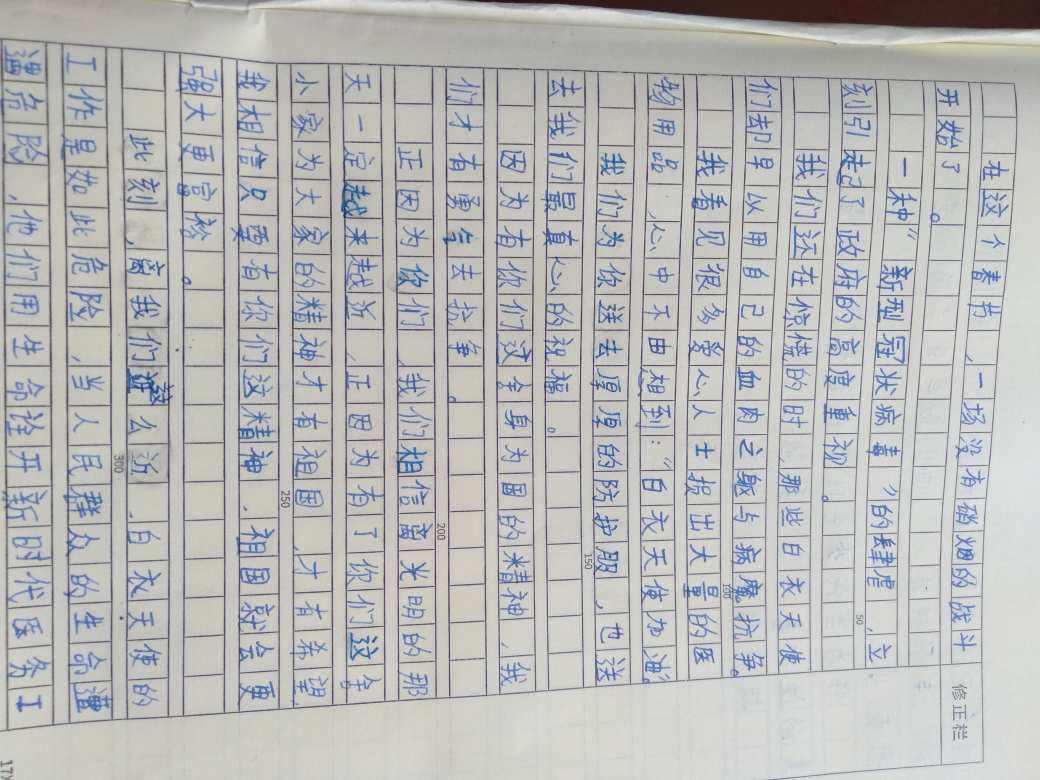 在这个春节，一场没有硝烟的战斗
开始了。
一种“新型冠状病毒”的肆虐，立
刻引起了政府的高度重视。
我们还在惊慌的时，那些白衣天使
们却早以用自己的血肉之躯与病魔抗争。
我看见很多爱心人士捐出大量的医
物用品，心中不由想到：“白衣天使加油。
我们为你送去厚厚的防护服，也送
去我们最真心的祝福。
因为有你们这舍身为国的精神，我
们才有勇气去抗争。
正因为你们，我们相信离光明的那
天一定越来越近，正因为有了你们这舍
小家为大家的精神才有祖国，才有希望，
我相信只要有你们这精神，祖国就会更
强大更富裕。
此刻，离我们这么近，白衣天使的
工作是如此危险，当人民群众的生命遭
遇危险，他们用生命诠开新时代医务工
修正栏
50
100
150
200
250
300